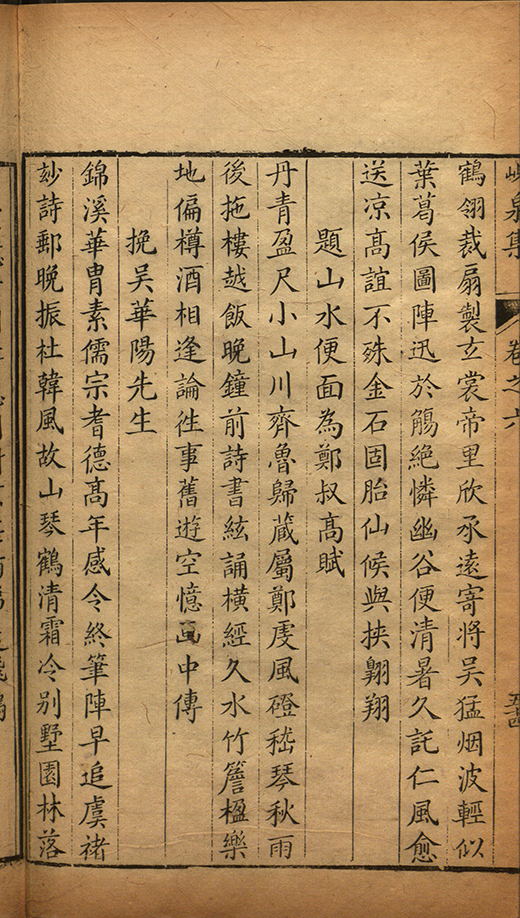 峴泉集 卷之六 五十四
鶴翎裁扇製玄裳帝里欣承遠寄將吴猛烟波輕似
葉葛侯圖陣迅於觴絶憐幽谷便清暑久託仁風愈
送凉髙誼不殊金石固胎仙候與挟翺翔
題山水便面為鄭叔髙賦
丹青盈尺小山川齊魯歸藏屬鄭䖍風磴嵇琴秋雨
後拖樓越飯晚鐘前詩書絃誦横經久水竹簷楹樂
地偏樽酒相逢論徃事舊遊空憶画中傳
挽吴華陽先生
錦溪華胄素儒宗耆德髙年感令終筆陣早追虞褚
玅詩郵晩振杜韓風故山琴鶴清霜冷别墅園林落